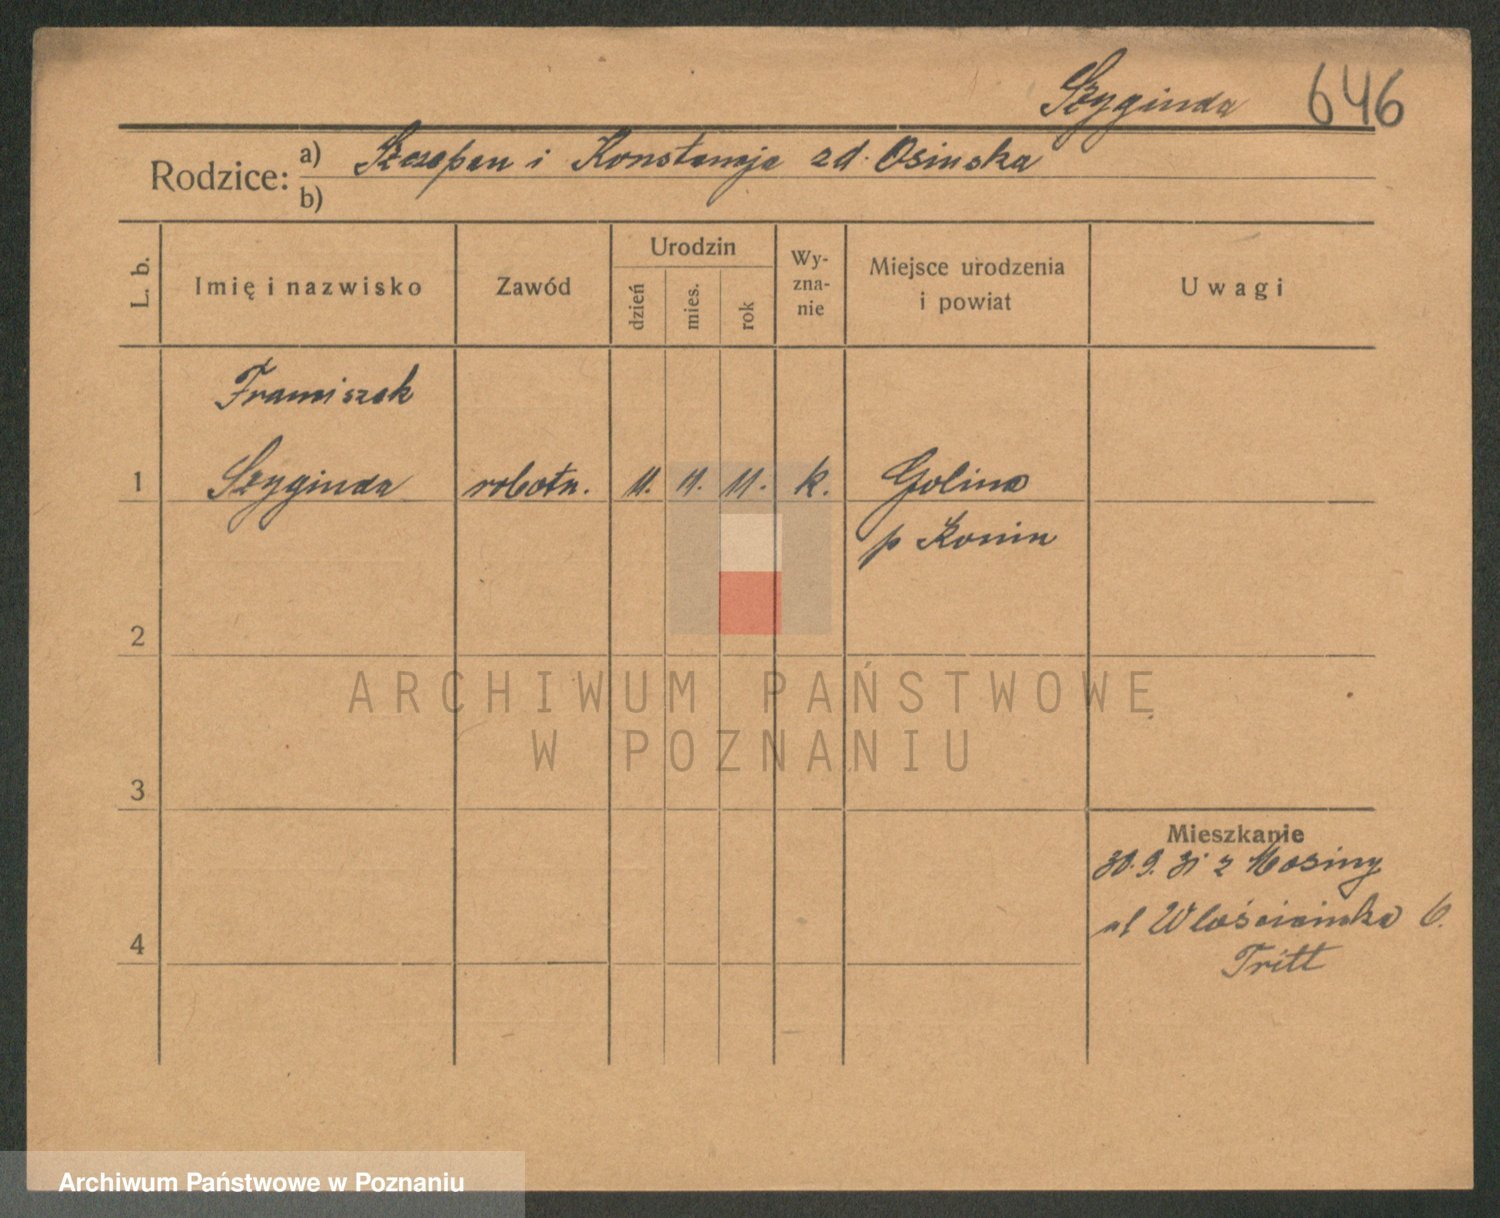 Szyginda 646
Rodzice: a) Szczepan i Konstancja zd. Osinska
b)
L. b.
Imię i nazwisko
Zawód
Urodzin
dzień
mies.
rok
Wy-
zna-
nie
Miejsce urodzenia
i powiat
Uwagi
Franciszek
1 Szyginda robotn. 11. 11. 11. k. Golina
p Konin
2
ARCHIWUM PAŃSTWOWE
W POZNANIU
3
Mieszkanie
30.9.31 z Mosiny
ul Włościańska 6.
4
Tritt
Archiwum Państwowe w Poznaniu